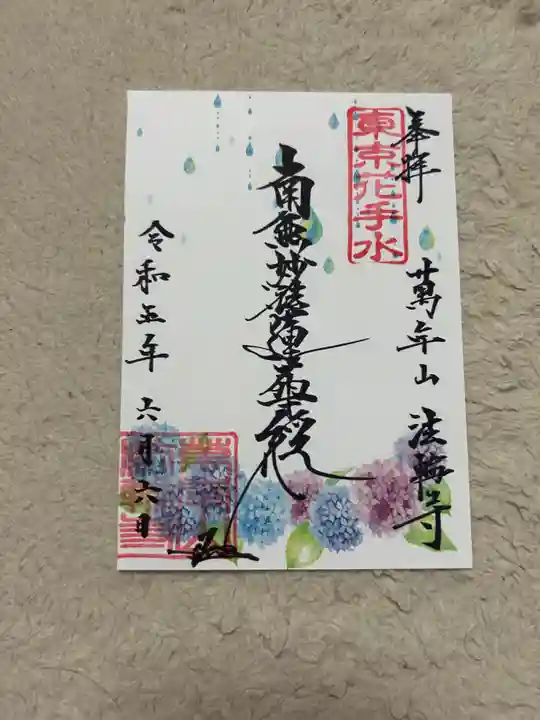 奉拝
東京花手水
萬年山 法輪寺
南無妙法蓮華経
令和五年 六月六日